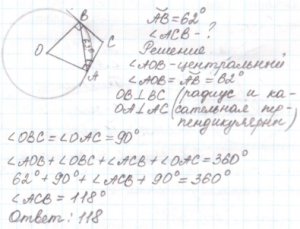 B
O
C
A
62°
ᴗAB=62°
∠ACB-?
Решение
∠AOB-центральный
∠AOB=ᴗAB=62°
OB⊥BC (радиус и ка-
OA⊥AC сательная пе-
рпендикулярны)
∠OBC=∠OAC=90°
∠AOB+∠OBC+∠ACB+∠OAC=360°
62°+90°+∠ACB+90°=360°
∠ACB=118°
Ответ: 118